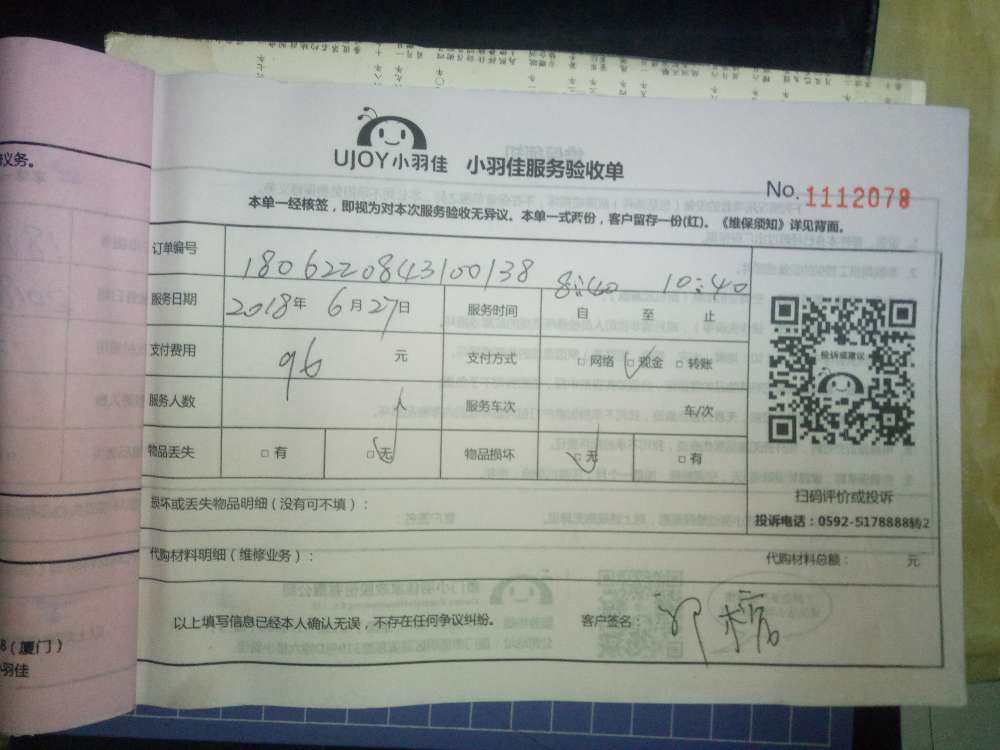 UJOY小羽佳 小羽佳服务验收单
No. 1112078
本单一经核签，即视为对本次服务验收无异议。本单一式两份，客户留存一份(红)。《维保须知》详见背面。
订单编号 1806220843100138
8:40 10:40
服务日期 2018年6月27日 服务时间 自 至 止
支付费用 96 元 支付方式 □网络 □现金 □转账
投诉或建议
服务人数 人 服务车次 车/次
物品丢失 □有 □无 物品损坏 □无 □有
扫码评价或投诉
损坏或丢失物品明细（没有可不填）：
投诉电话：0592-5178888转2
代购材料明细（维修业务）： 代购材料总额： 元
以上填写信息已经本人确认无误，不存在任何争议纠纷。 客户签名：
议务。
8（厦门）
羽佳